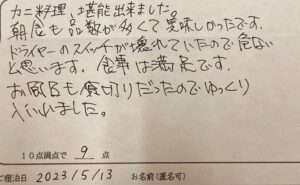 カニ料理、堪能出来ました。
朝食も品数が多くて美味しかったです。
ドライヤーのスイッチが壊れていたので危ない
と思います。食事は満足です。
お風呂も貸切りだったのでゆっくり
入いれました。
10点満点で 9 点
ご宿泊日 2023/5/13 お名前(匿名可)